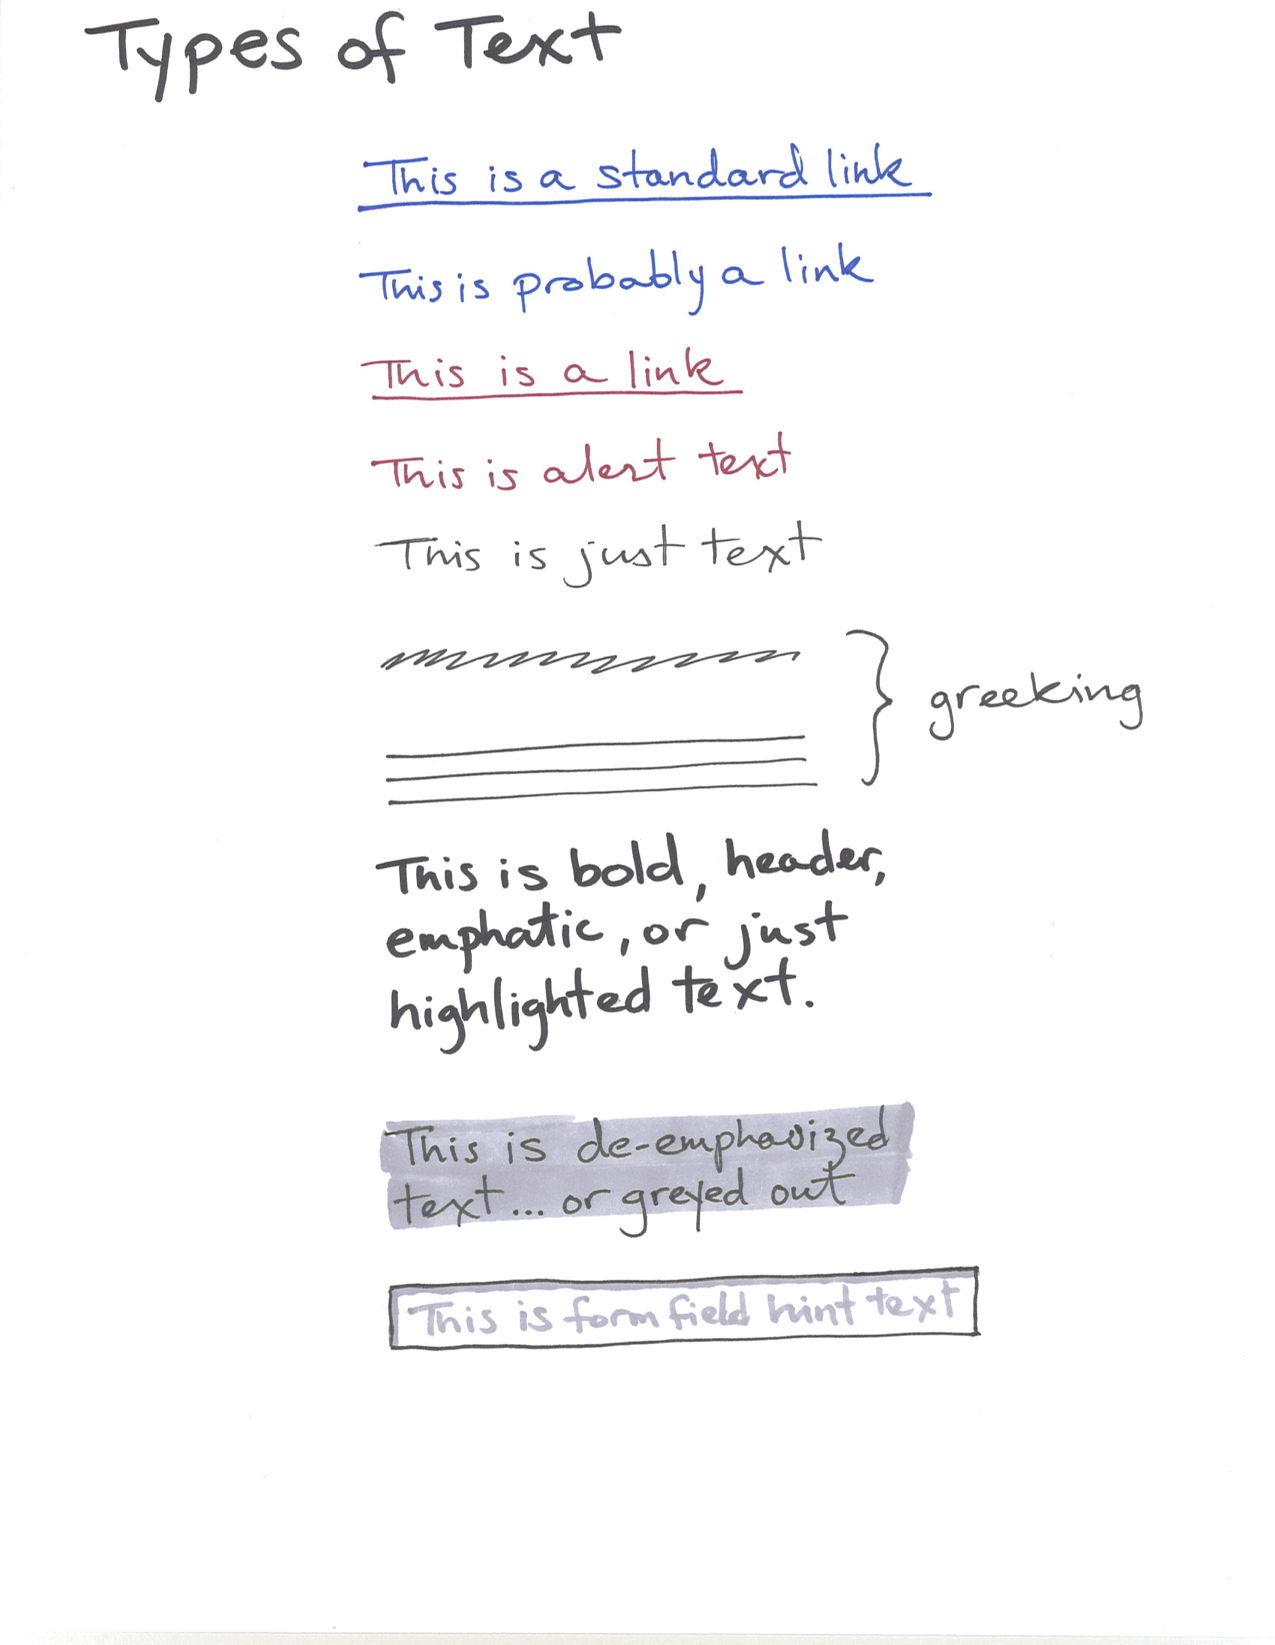 Types of Text
This is a standard link
This is probably a link
This is a link
This is alert text
This is just text
greeking
This is bold, header,
emphatic, or just
highlighted text.
This is de-emphasized
text... or greyed out
This is form field hint text